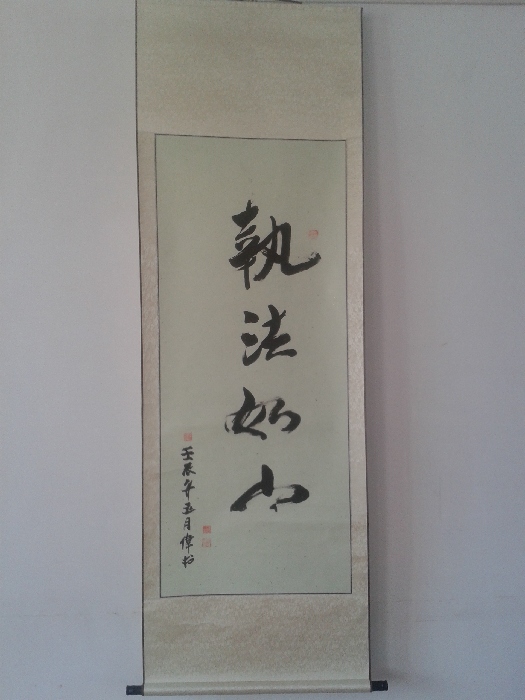 執法如山
壬辰年五月偉書